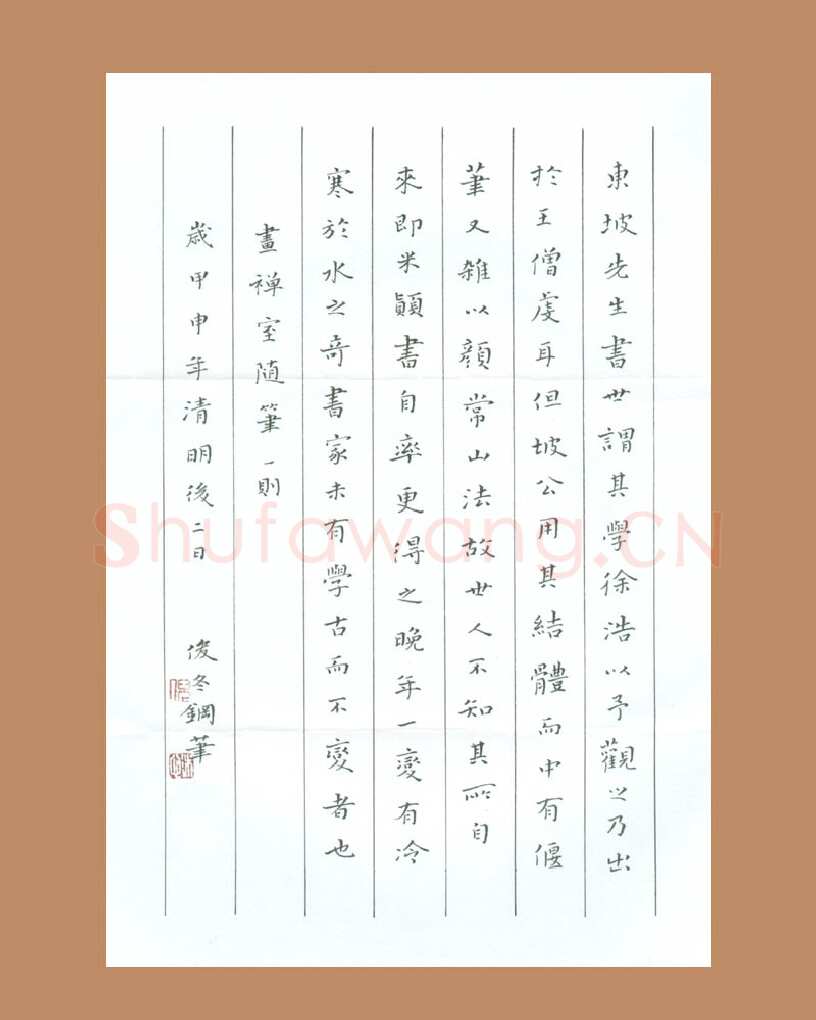 東坡先生書世謂其學徐浩以予觀之乃出
於王僧虔耳但坡公用其結體而中有偃
筆又雜以顏常山法故世人不知其所自
來即米顛書自率更得之晚年一變有冷
寒於水之奇書家未有學古而不變者也
畫禅室随筆一則
歲甲申年清明後二日 俊冬鋼筆
Shufawang.CN